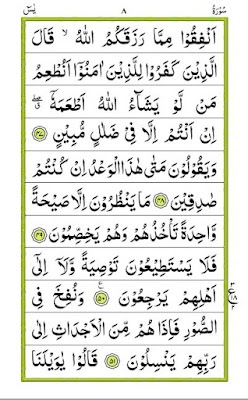 سُوْرَةُ ٨ يٰسٓ
اَنْفِقُوْا مِمَّا رَزَقَكُمُ اللهُ ۙ قَالَ
الَّذِيْنَ كَفَرُوْا لِلَّذِيْنَ اٰمَنُوْٓا اَنُطْعِمُ
مَنْ لَّوْ يَشَآءُ اللهُ اَطْعَمَهٗٓ ۖ
اِنْ اَنْتُمْ اِلَّا فِيْ ضَلٰلٍ مُّبِيْنٍ ﴿۴۷﴾
وَيَقُوْلُوْنَ مَتٰى هٰذَا الْوَعْدُ اِنْ كُنْتُمْ
صٰدِقِيْنَ ﴿۴۸﴾ مَا يَنْظُرُوْنَ اِلَّا صَيْحَةً
وَّاحِدَةً تَأْخُذُهُمْ وَهُمْ يَخِصِّمُوْنَ ﴿۴۹﴾
فَلَا يَسْتَطِيْعُوْنَ تَوْصِيَةً وَّلَآ اِلٰٓى
اَهْلِهِمْ يَرْجِعُوْنَ ﴿۵۰﴾ ع وَنُفِخَ فِي
الصُّوْرِ فَاِذَا هُمْ مِّنَ الْاَجْدَاثِ اِلٰى
رَبِّهِمْ يَنْسِلُوْنَ ﴿۵۱﴾ قَالُوْا يٰوَيْلَنَا